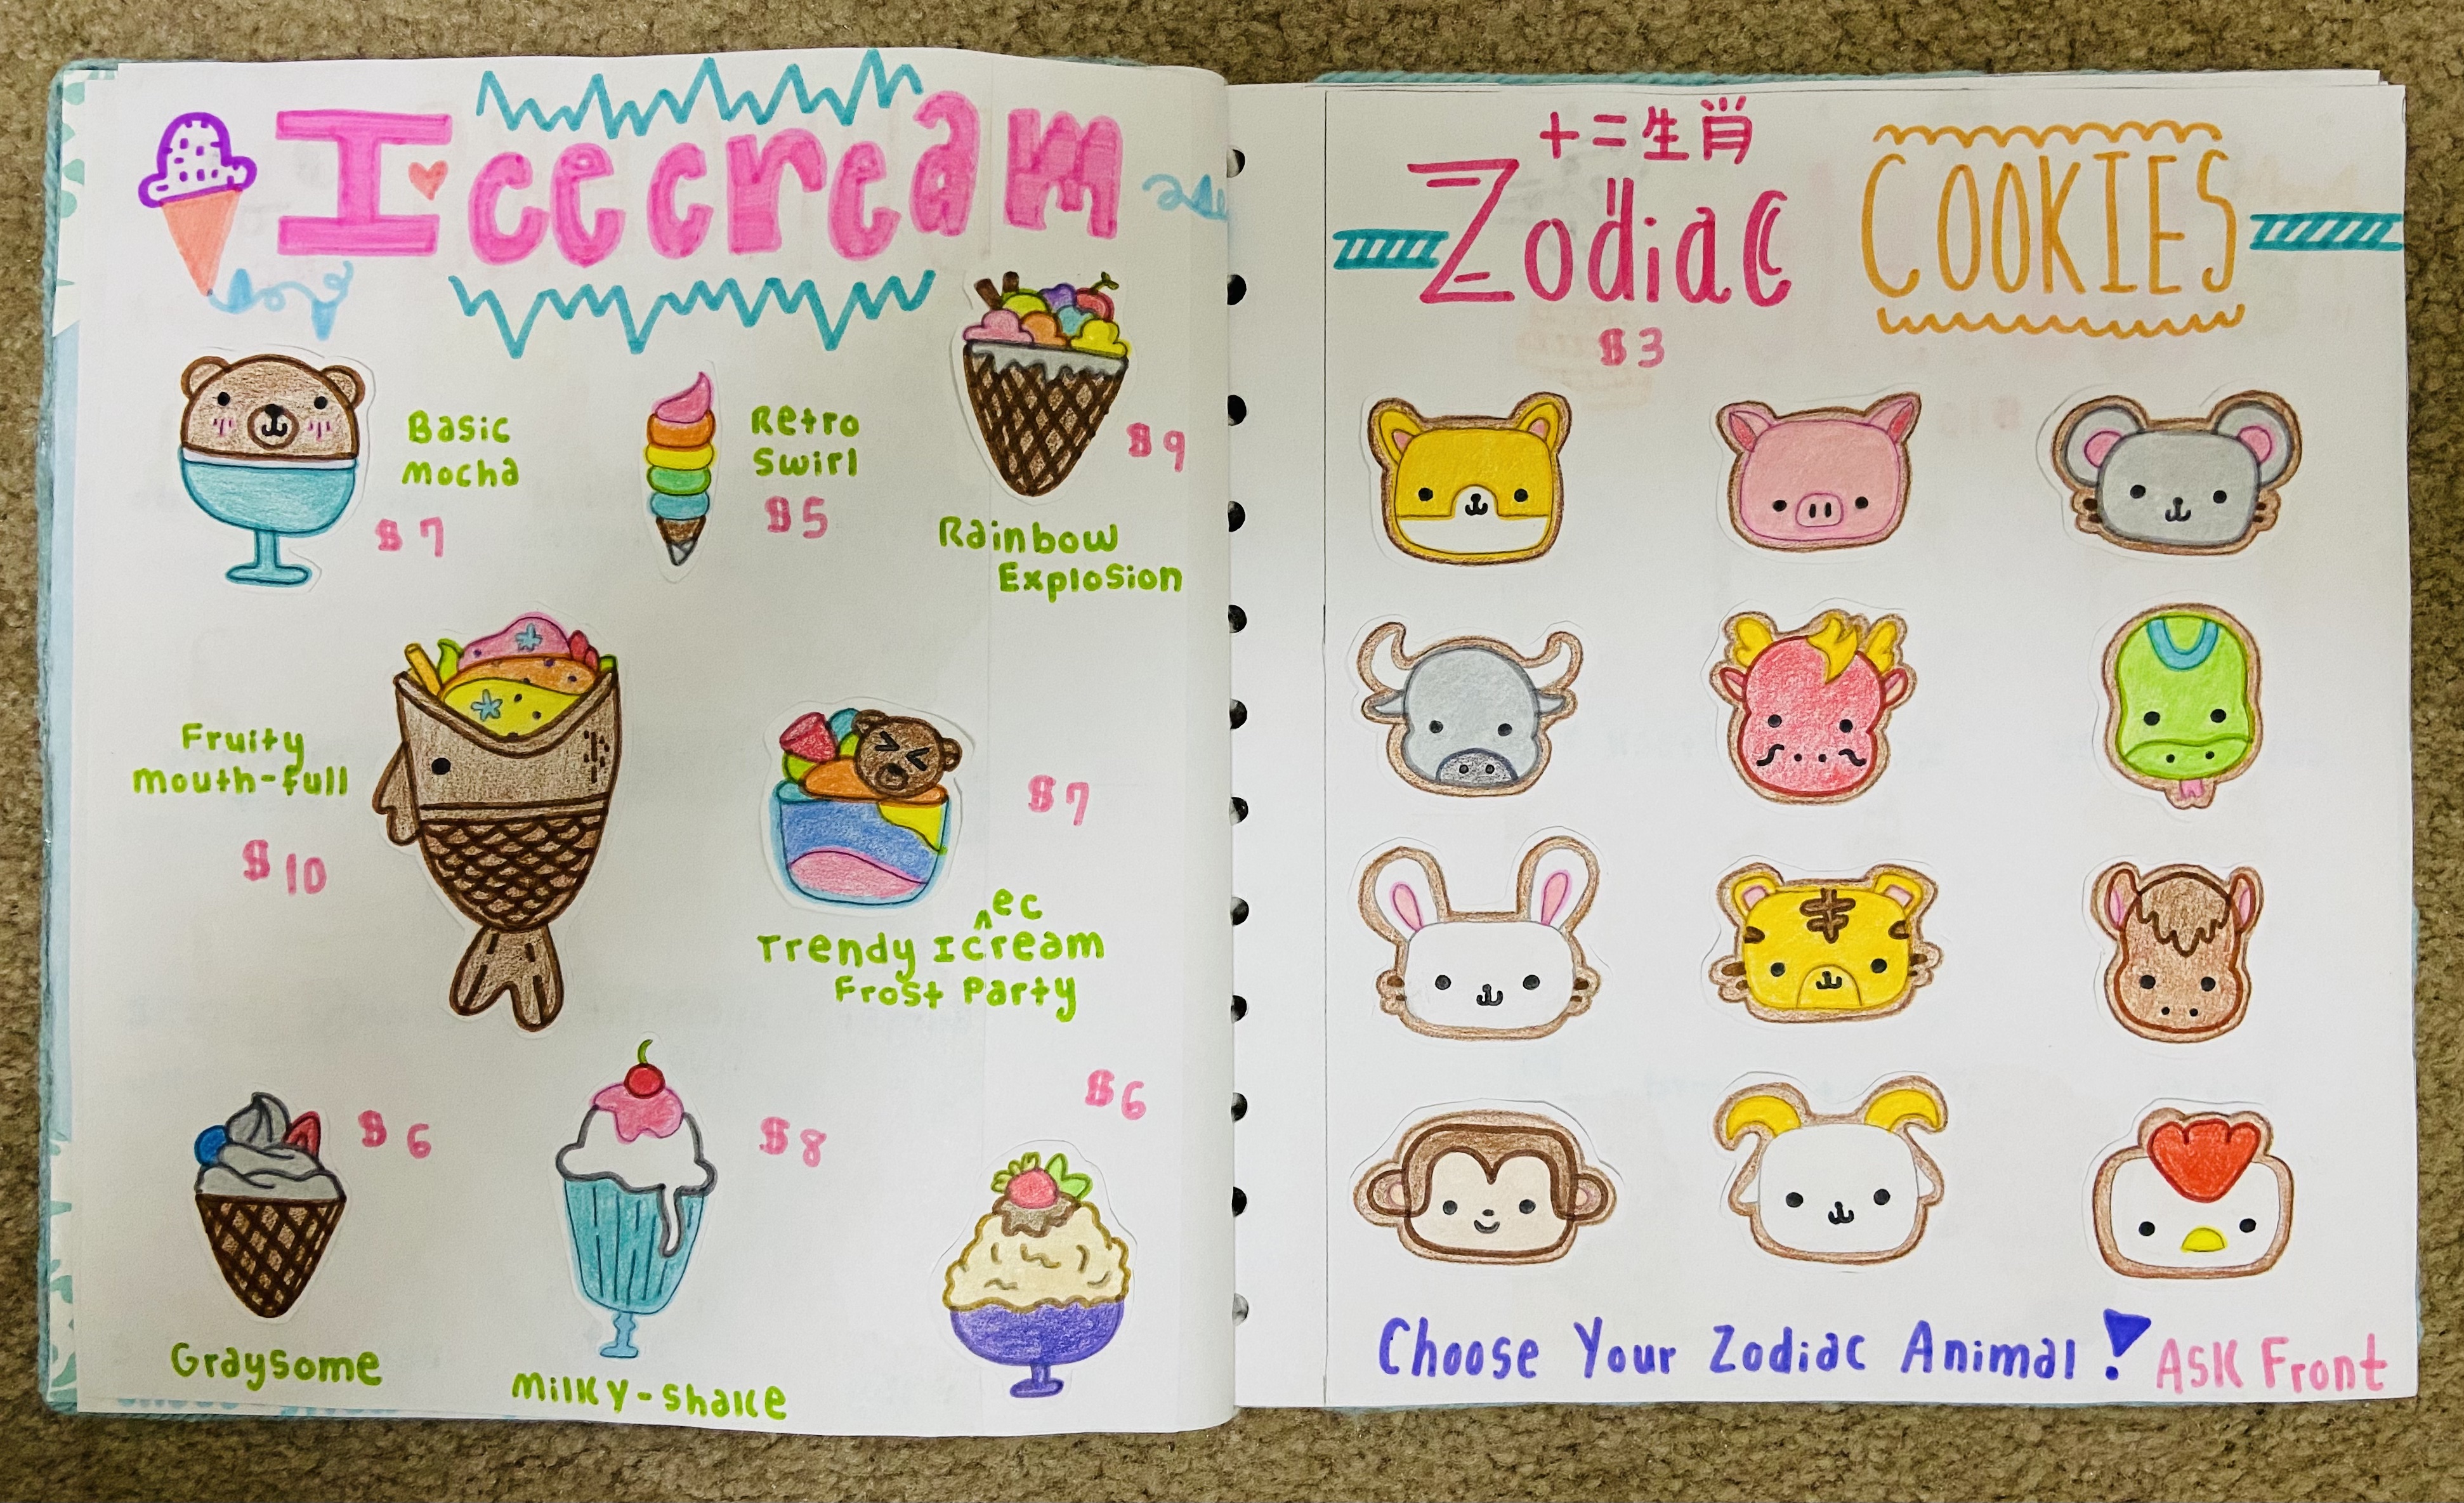 Icecream
Basic
Mocha
$7
Retro
Swirl
$5
$9
Rainbow
Explosion
Fruity
Mouth-full
$10
$7
ec
Trendy Icream
Frost Party
$6
Graysome
$8
Milky-shake
$6
十二生肖
Zodiac COOKIES
$3
Choose Your Zodiac Animal! ASK Front